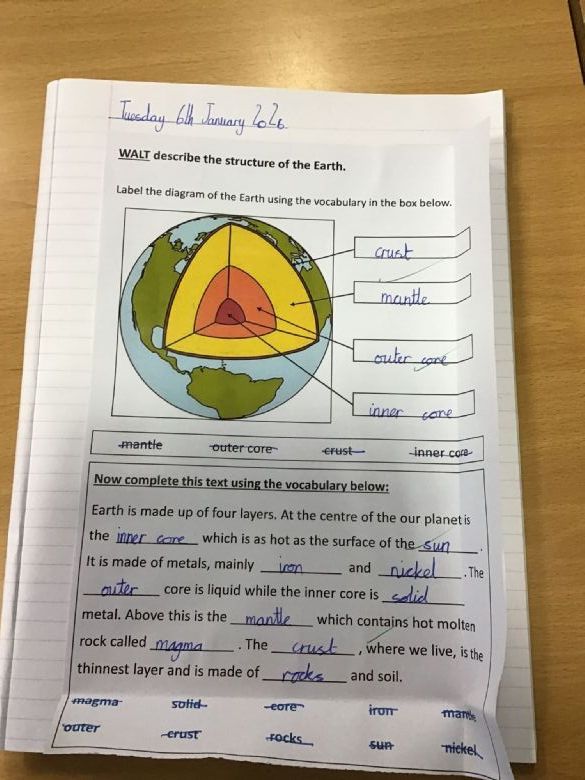 Tuesday 6th January 2026
WALT describe the structure of the Earth.
Label the diagram of the Earth using the vocabulary in the box below.
crust
mantle
outer core
inner core
mantle outer core crust inner core
Now complete this text using the vocabulary below:
Earth is made up of four layers. At the centre of the our planet is
the inner core which is as hot as the surface of the sun.
It is made of metals, mainly iron and nickel. The
outer core is liquid while the inner core is solid
metal. Above this is the mantle which contains hot molten
rock called magma. The crust, where we live, is the
thinnest layer and is made of rocks and soil.
magma solid core iron mantle
outer crust rocks sun nickel